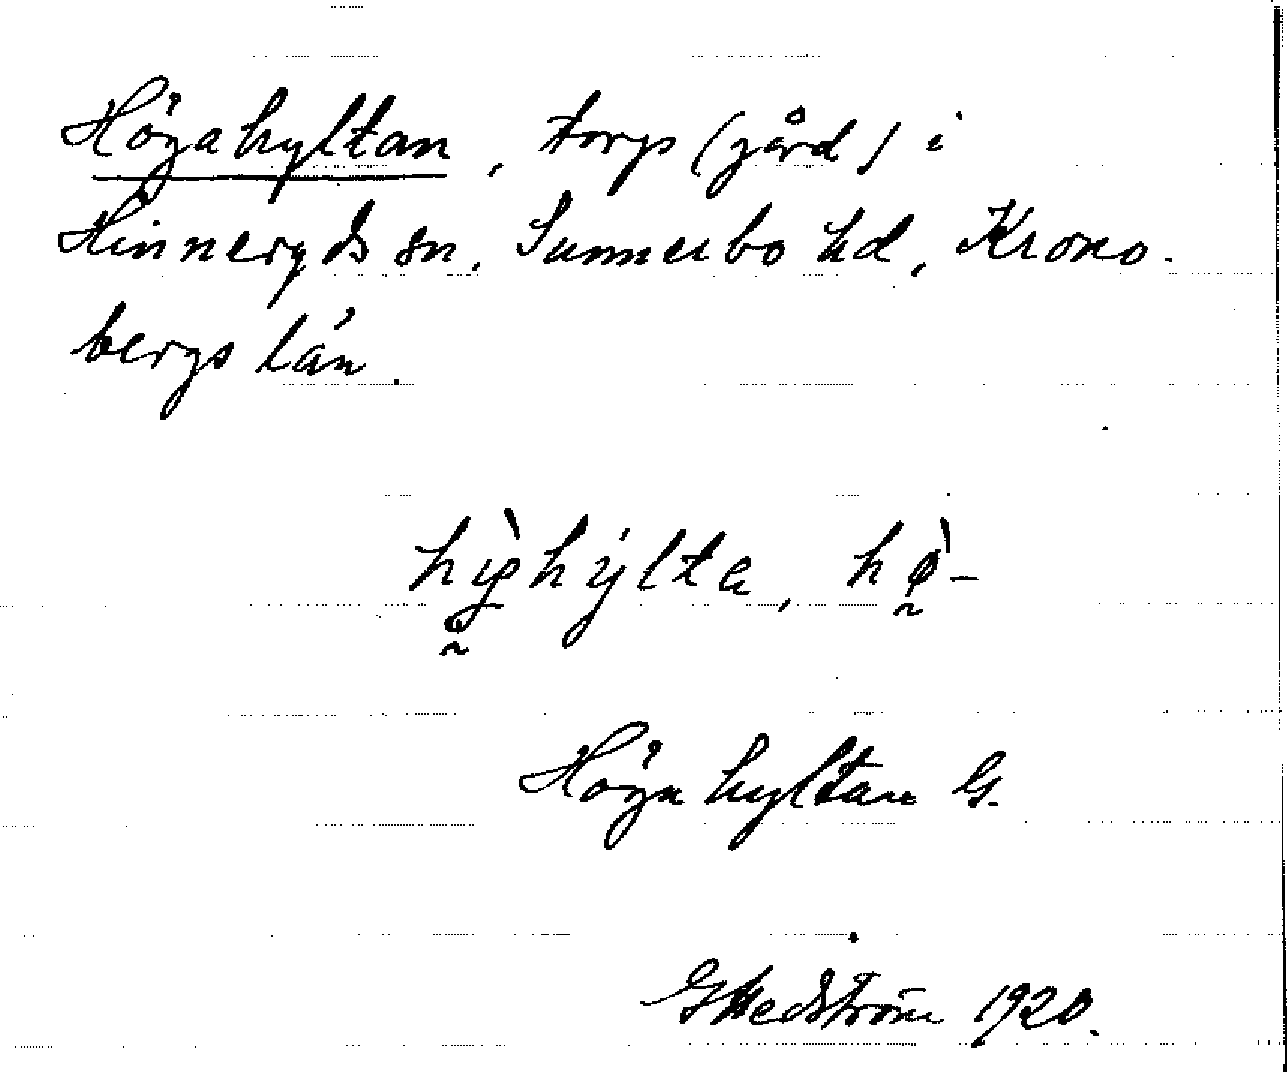 Högahyltan, torp (gård) i
Hinneryds sn, Sunnerbo hd, Krono-
bergs län.
hø̀hýlta, hø̀-
Högahyltan G.
G Hedström 1920.